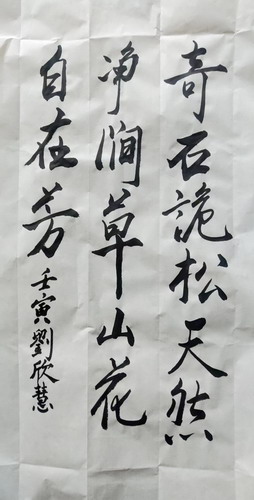 奇石詭松天然
净澗草山花
自在芳
壬寅劉欣慧